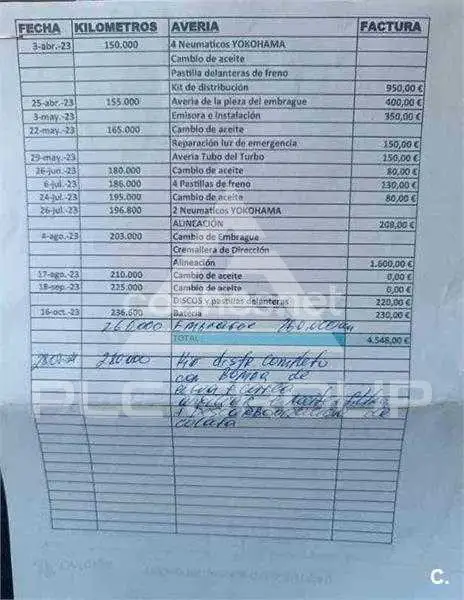 FECHA KILOMETROS AVERIA FACTURA
3-abr.-23 150.000 4 Neumaticos YOKOHAMA
Cambio de aceite
Pastilla delanteras de freno
Kit de distribución 950,00 €
25-abr.-23 155.000 Averia de la pieza del embrague 400,00 €
3-may.-23 Emisora e Instalación 350,00 €
22-may.-23 165.000 Cambio de aceite
Reparación luz de emergencia 150,00 €
29-may.-23 Averia Tubo del Turbo 150,00 €
26-jun.-23 180.000 Cambio de aceite 80,00 €
6-jul.-23 186.000 4 Pastillas de freno 130,00 €
24-jul.-23 195.000 Cambio de aceite 80,00 €
26-jul.-23 196.800 2 Neumaticos YOKOHAMA
ALINEACIÓN 208,00 €
4-ago.-23 203.000 Cambio de Embrague
Cremallera de Dirección
Alineación 1.600,00 €
17-ago.-23 210.000 Cambio de aceite 0,00 €
18-sep.-23 225.000 Cambio de aceite 0,00 €
DISCOS y pastillas delanteras 220,00 €
16-oct.-23 236.600 Bateria 230,00 €
260.000 Embrague 260.000
TOTAL 4.548,00 €
280.000 Kit distr completo
con BOMBA de
de
culata
C.